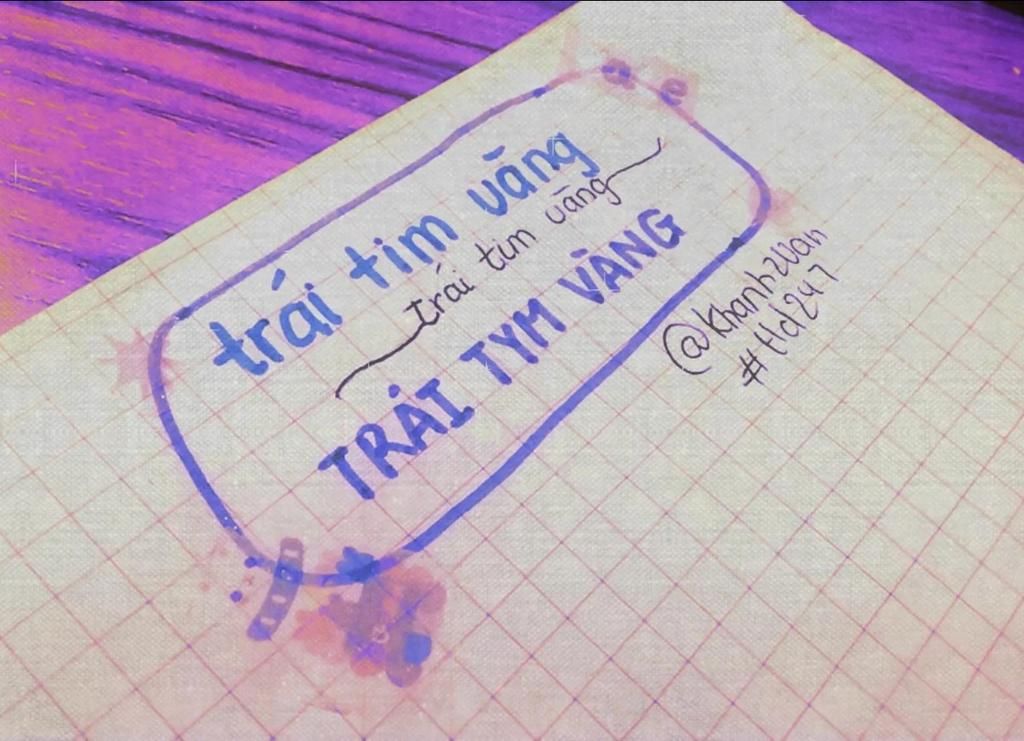 trái tim vāng
trái tim vāng
TRÁI TYM VÀNG
@Khanhzuan
#Hd247